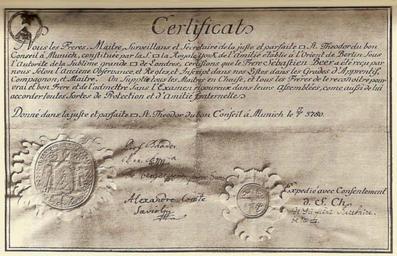 Certificat
Nous les Freres, Maitre, Surveillans et Secretaire de la juste et parfaite St. Theodor du bon
Conseil à Munich, constituée par la Royale York de l'amitié etablie à l'Orient de Berlin Sous
l'Autorité de la Sublime grande de Londres, certifions que le Frere Sebastien Beer a été reçu par
nous Selon l'ancien Observance, et Regles, et Inscript dans nos Listes dans les Grades d'Apprentif,
Compagnon, et Maitre. On Supplie tous les Maitres en Chaise, et tous les Freres de le reconnoître pour
vrai et bon Frere et de l'admettre Sans l'Examen rigoureux dans leurs Assemblées, come aussi de lui
accorder toutes Sortes de Protection et d'Amitié fraternelle.
Donné dans la juste et parfaite St. Theodor du bon Conseil à Munich le 1780.
Alexandre Comte
Savioly
Expedié avec Consentement
d. S. Ch.